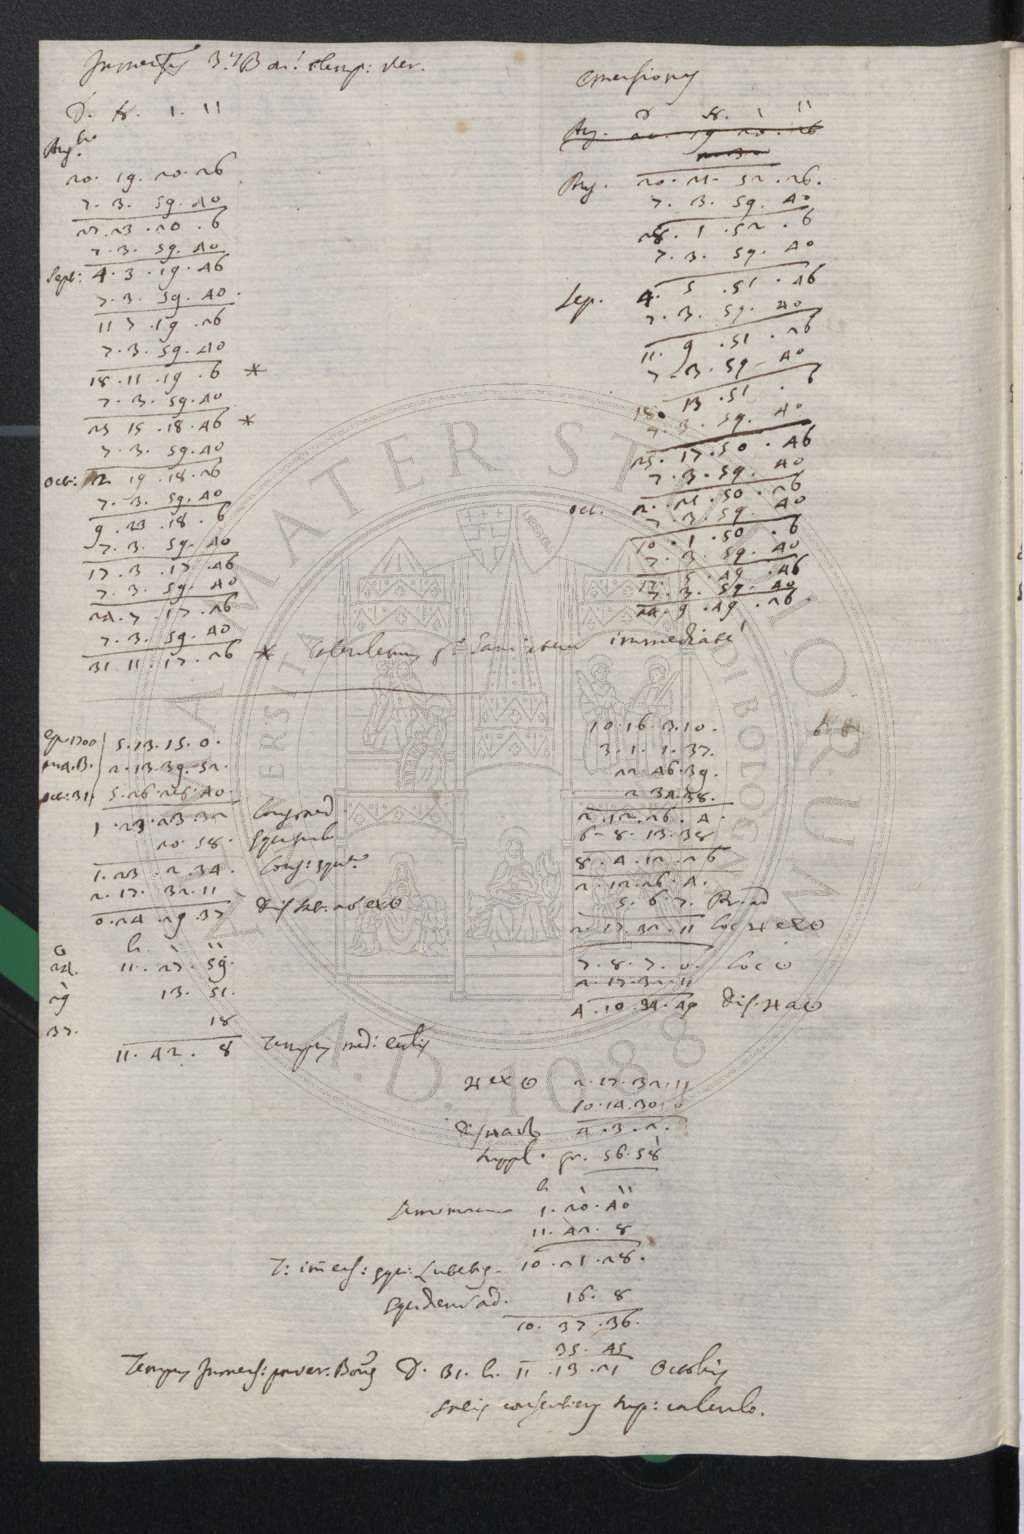 Immersiones 3.ⁱ ♃ Bon: temp: ver.
D. H. ' ''
Aug.
20. 19. 20. 26
7. 3. 59. 40
27. 23. 20. 6
7. 3. 59. 40
Sept: 4. 3. 19. 46
7. 3. 59. 40.
11 7. 19. 26
7. 3. 59. 40
18. 11. 19. 6 *
7. 3. 59. 40
25 15. 18. 46 *
7. 3. 59. 40
Oct: 2 19. 18. 26
7. 3. 59. 40
9. 23. 18. 6
7. 3. 59. 40
17. 3. 17. 46
7. 3. 59. 40
24. 7. 17. 26
7. 3. 59. 40
31 11. 17. 26 * immediatè
Emersiones
D H. ' ''
Aug. 20. 19 20. 26
Aug. 20. 21. 52. 26.
7. 3. 59. 40
28. 1. 52. 6
7. 3. 59. 40
Sep. 4. 5. 51. 46
7. 3. 59. 40
11. 9. 51. 26
7. 3. 59. 40
18. 13. 51. 6
7. 3. 59. 40
25. 17. 50. 46
7. 3. 59. 40
Oct. 2. 21. 50. 26
7. 3. 59. 40
10. 1. 50. 6
7. 3. 59. 40
17. 5. 49. 46
7. 3. 59. 40
24. 9. 49. 26.
ep. 1700 5. 13. 15. 0.
an. 4. B. 2. 13. 39. 52.
Oct: 31 5. 26. 28. 40.
1. 23. 23. 32
20. 58.
1. 23. 2. 34. Long: æquat
2. 17. 32. 11
0. 24. 29. 37
h. ' ''
24. 11. 27. 59.
29 13. 51.
37. 18
11. 42. 8 Tempus med:
10. 16. 3. 10.
3. 1. 1. 37.
22. 46. 39.
2 34. 38.
2. 12. 26. 4.
6. 8. 13. 38
8. 4. 12. 26
2. 12. 26. 4.
5. 6. 7. Pr. ad
2. 17. 32. 11 Loc ♃ ex ☉
7. 8. 7. 0. Loc ☉
2. 17. 32. 11
4. 20. 34. 49 Dis. ♃ a ☉
♃ ex ☉ 2. 17. 32. 11
10. 14. 30. 0
4. 3. 2.
Suppl. gr. 56. 58
h ' ''
Semimora 1. 20. 40
11. 42. 8
T: imers: 10. 21. 28.
ad. 16. 8
10. 37. 36.
35. 45
Tempus Immers: ver. Bon D. 31. h. 11. 13. 21 Octobris
sup: calculo.